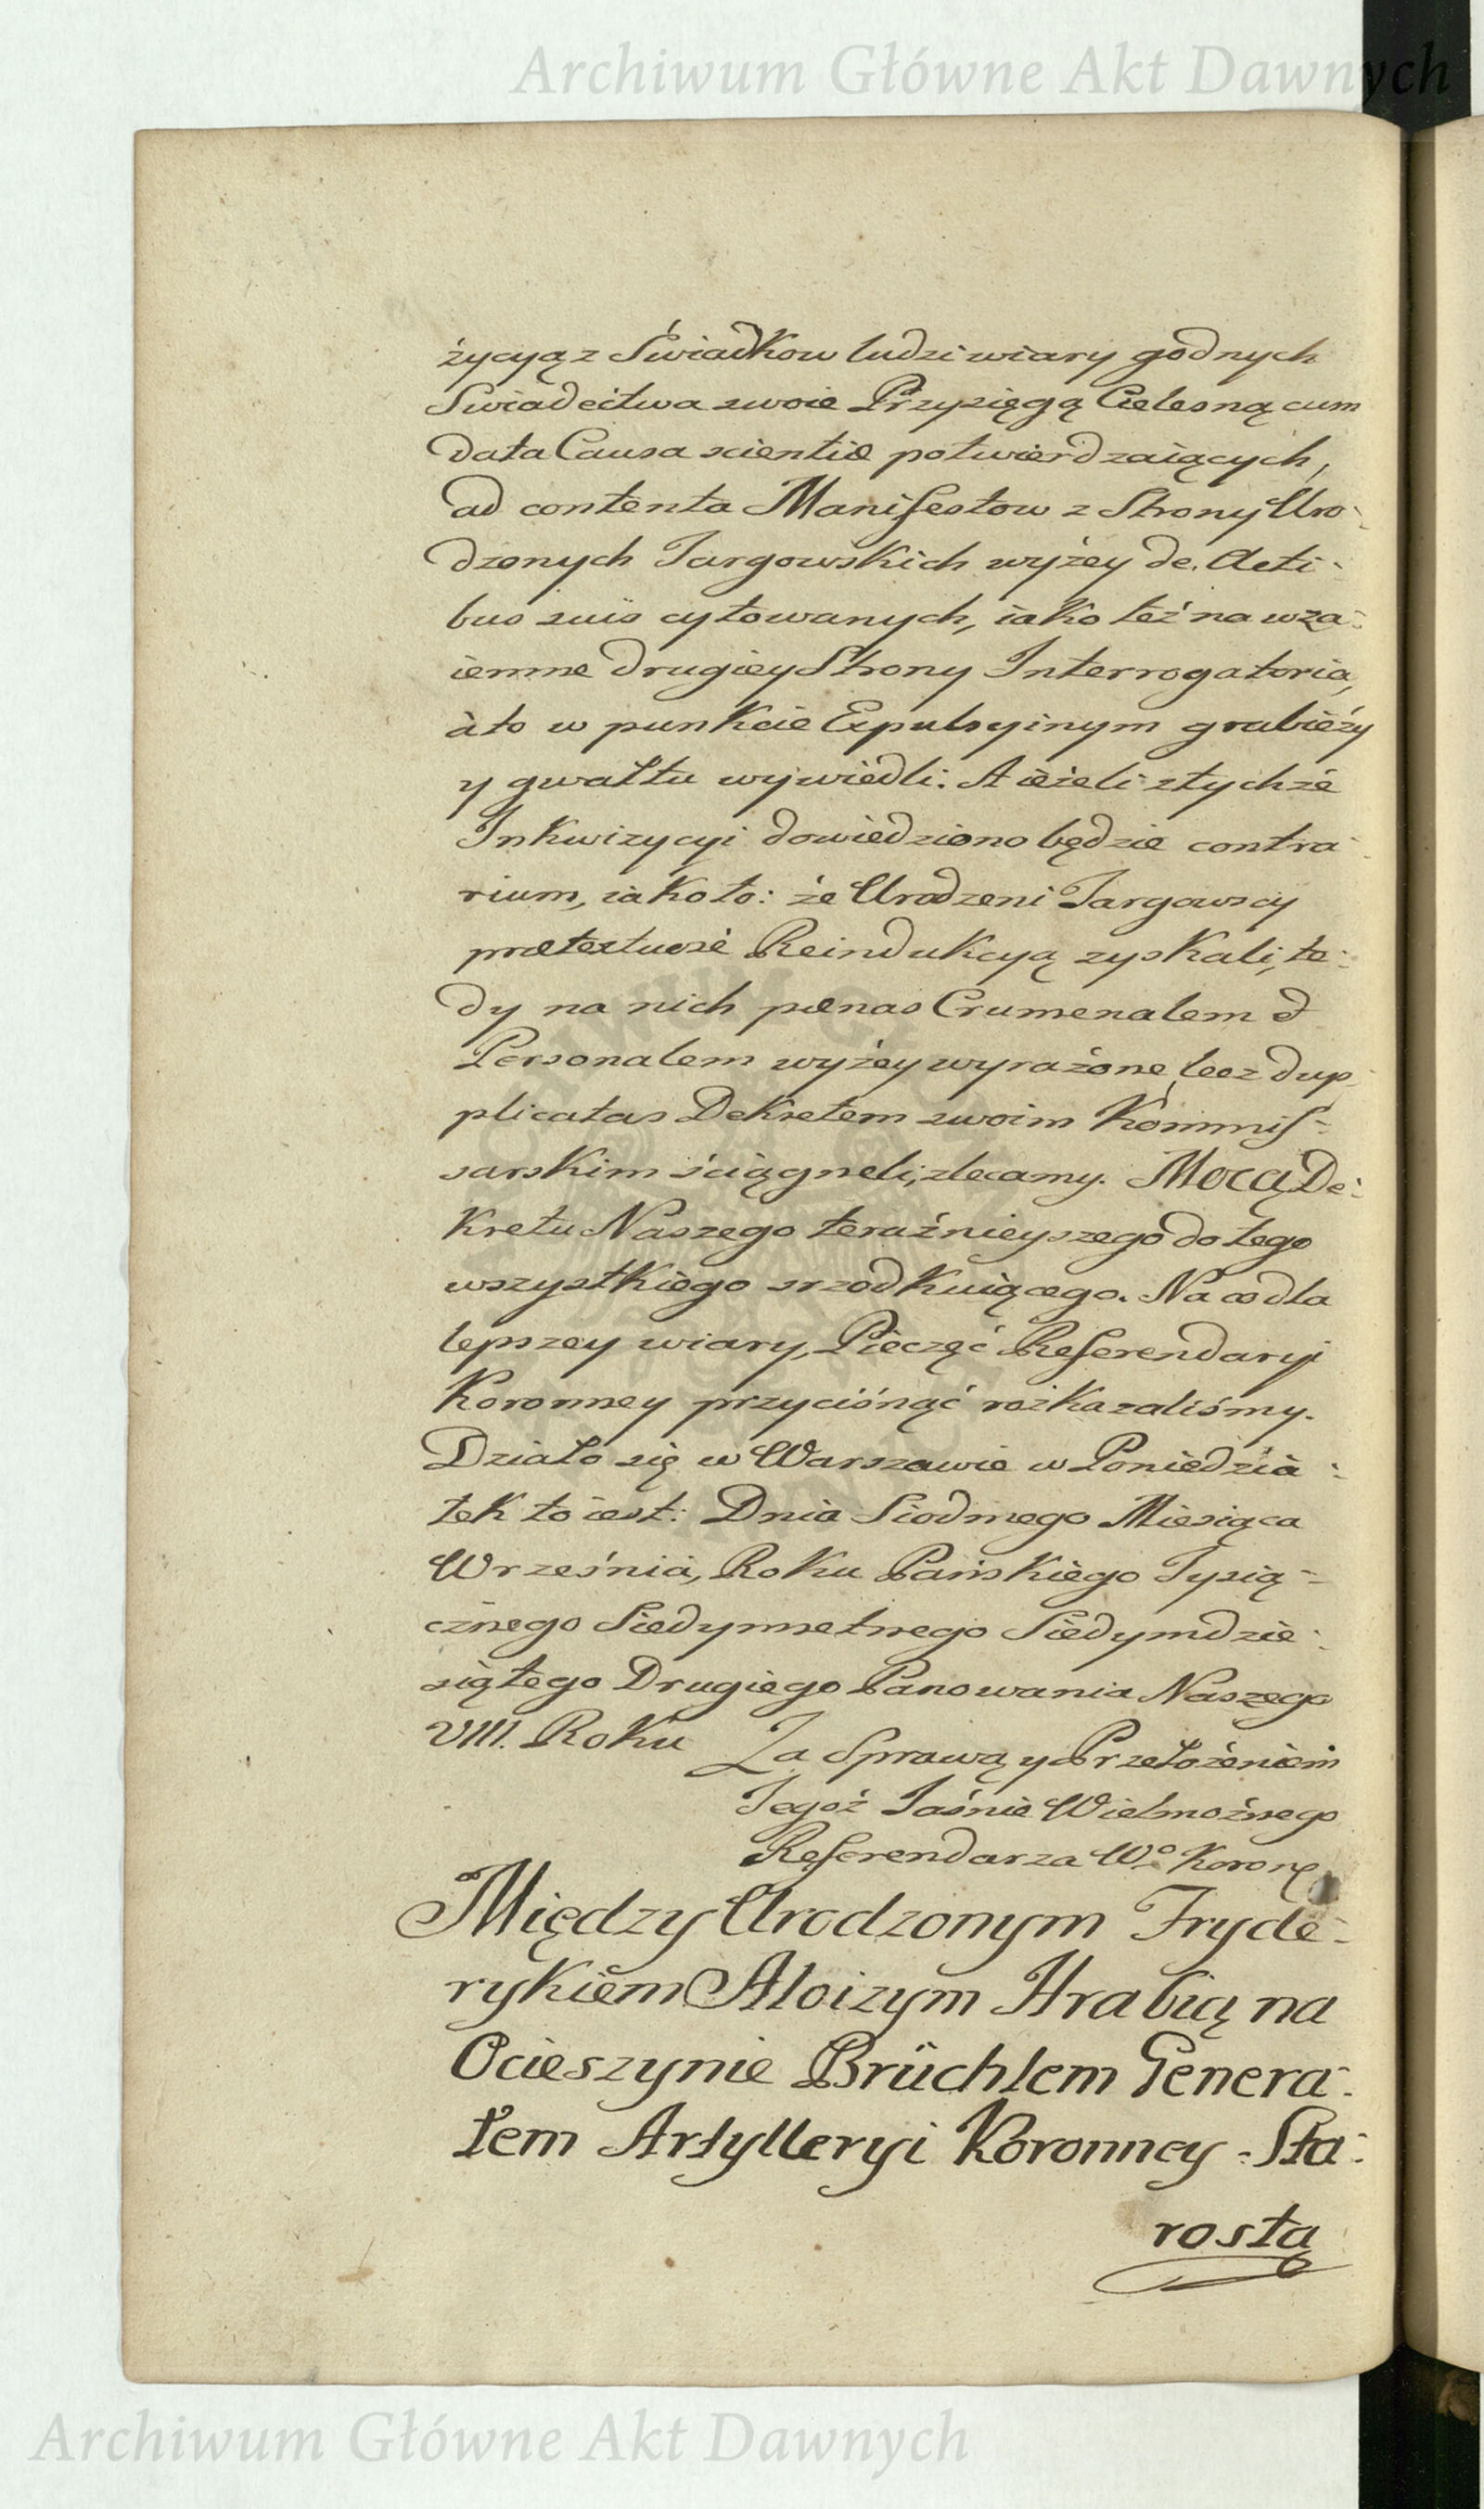 Archiwum Główne Akt Dawnych
życyą z Swiadkow ludzi wiary godnych
Swiadectwa swoie Przysięgą Cielesną cum
data Causa scientiæ potwierdzaiących,
ad contenta Manifestow z Strony Uro-
dzonych Jargowskich wyżey de Acti-
bus suis cytowanych, iako też na wza-
iemne drugiey Strony Interrogatoria,
a to w punkcie Expulsyinym grabieży
y gwałtu wywiedli. A ieżeli z tychże
Inkwizycyi dowiedziono będzie contra-
rium, iako to: że Urodzeni Jargowscy
prætextuose Reindukcyą zyskali, te-
dy na nich pœnas Crumenalem &
Personalem wyżey wyrażone lecz dup-
plicatas Dekretem swoim Kommis-
sarskim ściągneli, zlecamy. Mocą De-
kretu Naszego teraźnieyszego do tego
wszystkiego srzodkuiącego. Na co dla
lepszey wiary, Pieczęć Referendaryi
Koronney przycisnąć rozkazaliśmy.
Działo się w Warszawie w Poniedzia-
łek to iest: Dnia Siodmego Miesiąca
Września, Roku Pańskiego Tysią-
cznego Siedymsetnego Siedymdzie-
siątego Drugiego Panowania Naszego
VIII. Roku Za Sprawą y Przełożeniem
Tegoż Jaśnie Wielmożnego
Referendarza Wo Koron
Między Urodzonym Fryde-
rykiem Aloizym Hrabią na
Ocieszynie Brüchlem Genera-
łem Artylleryi Koronney Sta-
rostą
Archiwum Główne Akt Dawnych